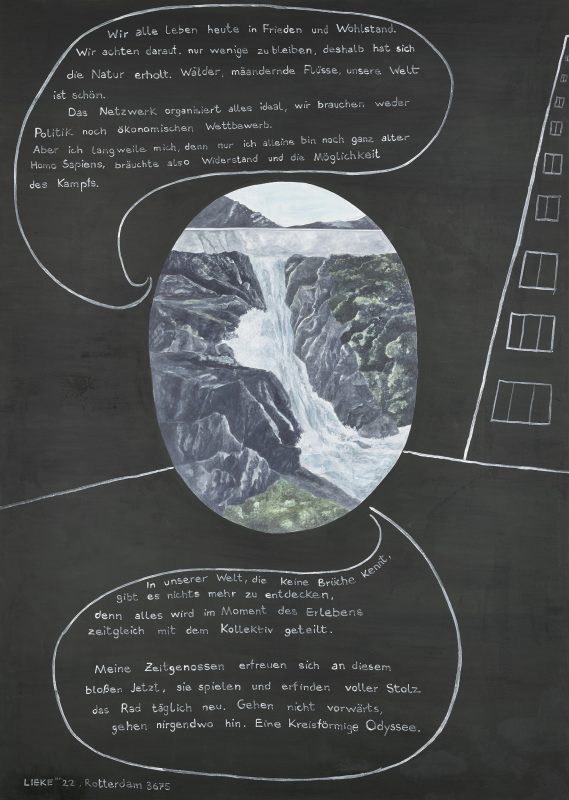 Wir alle leben heute in Frieden und Wohlstand.
Wir achten darauf, nur wenige zu bleiben, deshalb hat sich
die Natur erholt. Wälder, mäandernde Flüsse, unsere Welt
ist schön.
Das Netzwerk organisiert alles ideal, wir brauchen weder
Politik noch ökonomischen Wettbewerb.
Aber ich langweile mich, denn nur ich alleine bin noch ganz alter
Homo Sapiens, bräuchte also Widerstand und die Möglichkeit
des Kampfs.
In unserer Welt, die keine Brüche kennt,
gibt es nichts mehr zu entdecken,
denn alles wird im Moment des Erlebens
zeitgleich mit dem Kollektiv geteilt.
Meine Zeitgenossen erfreuen sich an diesem
bloßen Jetzt, sie spielen und erfinden voller Stolz
das Rad täglich neu. Gehen nicht vorwärts,
gehen nirgendwo hin. Eine Kreisförmige Odyssee.
LIEKE '''22, Rotterdam 3675